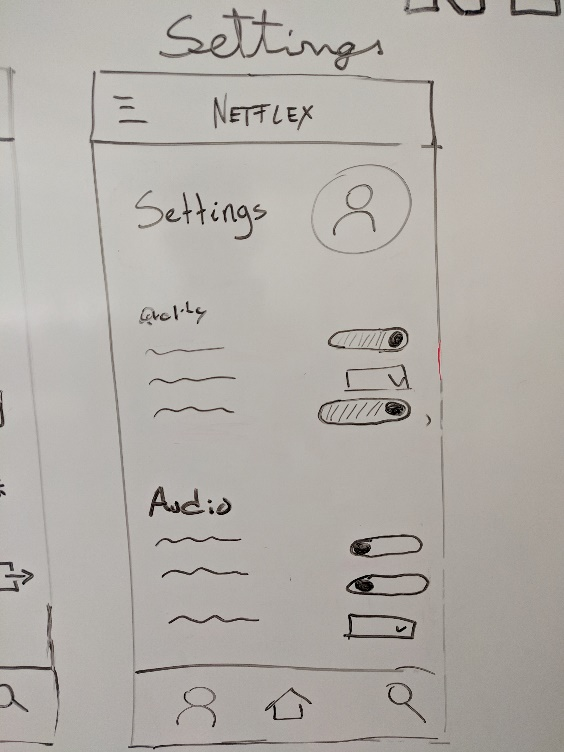 Settings
NETFLEX
Settings
Quality
Audio